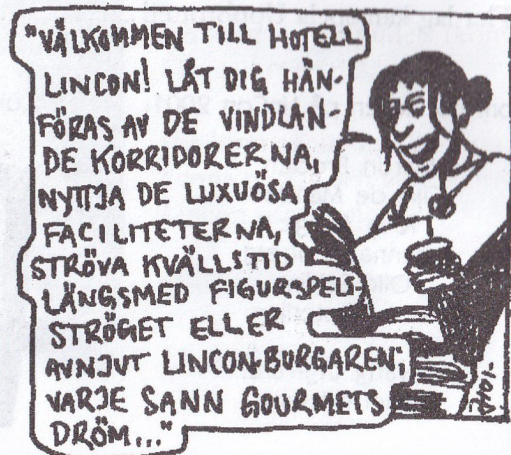 "VÄLKOMMEN TILL HOTELL
LINCON! LÅT DIG HÄN-
FÖRAS AV DE VINDLAN-
DE KORRIDORERNA,
NYTTJA DE LUXUÖSA
FACILITETERNA,
STRÖVA KVÄLLSTID
LÄNGSMED FIGURSPELS-
STRÖGET ELLER
AVNJUT LINCON-BURGAREN,
VARJE SANN GOURMETS
DRÖM..."